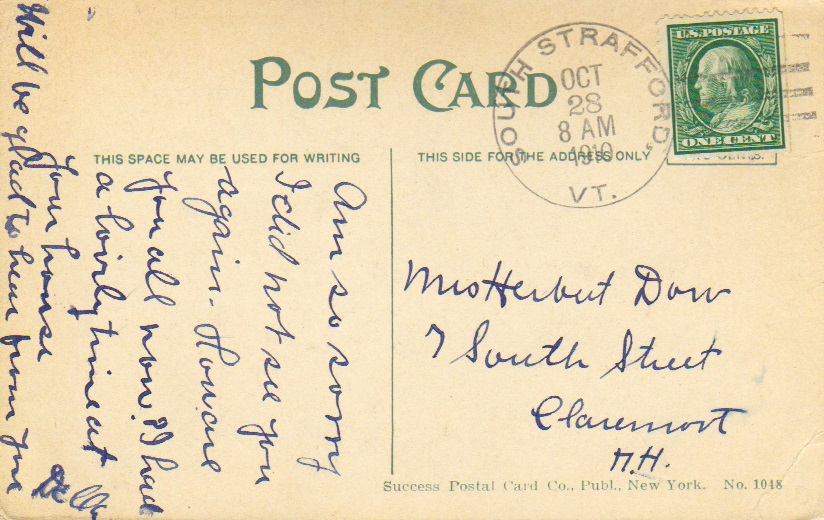 POST CARD
SOUTH STRAFFORD, VT.
OCT
28
8 AM
1910
U.S. POSTAGE
ONE CENT
THIS SPACE MAY BE USED FOR WRITING
THIS SIDE FOR THE ADDRESS ONLY
Am so sorry
I did not see you
again. How are
you all now? I had
a lovely time at
your house
Will be glad to hear from you
Della
Mrs Herbert Dow
7 South Street
Claremont
N.H.
Success Postal Card Co., Publ., New York. No. 1048